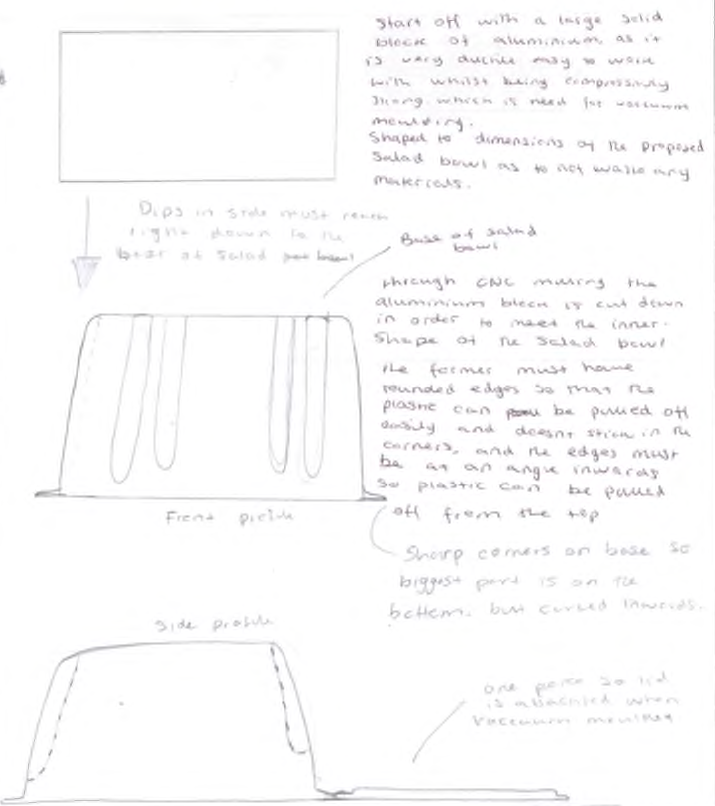 Start off with a large solid
block of aluminium, as it
is very ductile easy to work
with whilst being compressivly
strong, which is need for vaccum
moulding.
Shaped to dimensions of the proposed
salad bowl as to not waste any
materials.
Dips in side must reach
right down to the
base of salad bowl
Base of salad
bowl
through CNC milling the
aluminium block is cut down
in order to meet the inner
shape of the salad bowl
The former must have
rounded edges so that the
plastic can be pulled off
easily and doesnt stick in the
corners, and the edges must
be at an angle inwards
so plastic can be pulled
off from the top
Front profile
Sharp corners on base so
biggest part is on the
bottom, but curved inwards.
Side profile
one piece so lid
is attached when
vaccuum moulded